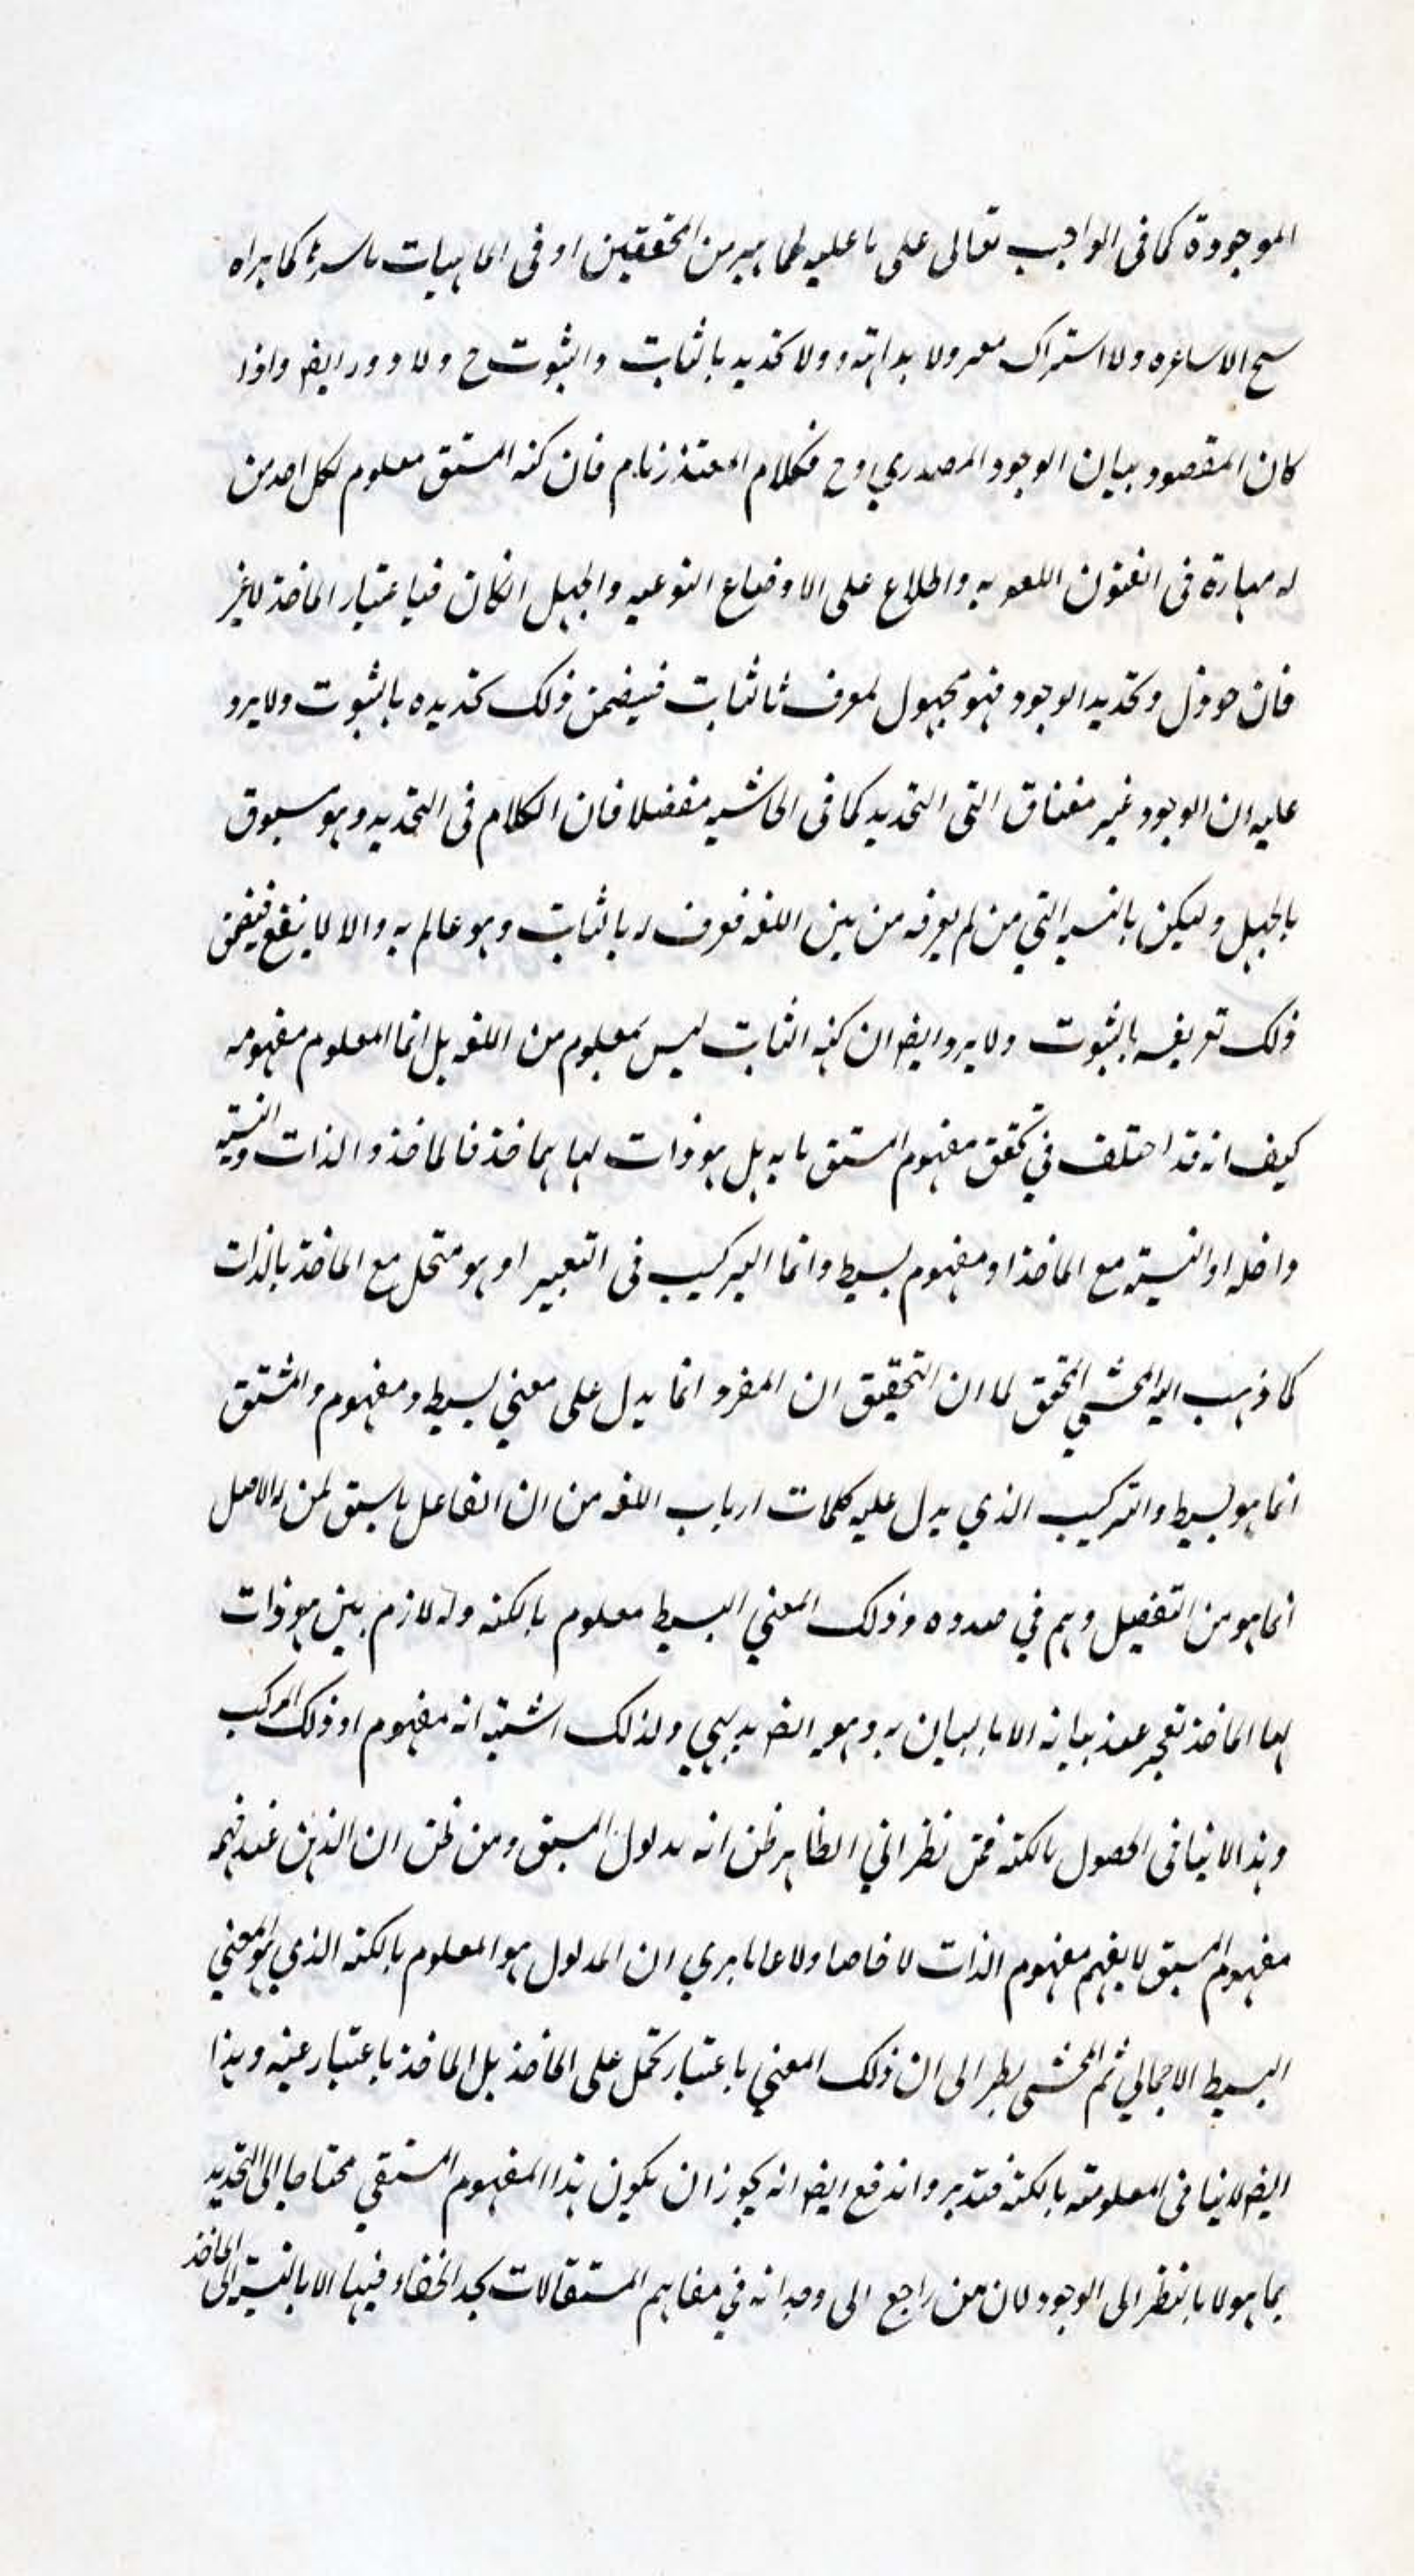 الموجودة كما في الواجب تعالى على ما عليه الجماهير من المحققين او في الماهيات باسرها كما يراه
شيخ الاشاعره ولا اشتراك معه ولا بداهته ولا تحديد بالثابت والثبوت ح ولا دور ايضا واذا
كان المقصود بيان الوجود المصدري وح فكلام المعتذر تام فان كنه المشتق معلوم لكل احد من
له مهارة في الفنون اللغويه واطلاع على الاوضاع النوعيه والجهل انكان فباعتبار الماخذ لا غير
فان حوول وتحديد الوجود فهو مجهول لمعرف ثا لثابت فيضمن ذلك تحديده بالثبوت ولا يرد
عليه ان الوجود غير مفتاق التي التحديد كما في الحاشيه مفصلا فان الكلام في التحديد وهو مسبوق
بالجهل وليكن بالنسبه التي من لم يعرفه من بين اللغه فعرف له بالثابت وهو عالم به والا لا ينفع فيضمن
ذلك تعريفه بالثبوت ولا يرد ايضا ان كنه الثابت ليس بمعلوم من اللغه بل انما المعلوم مفهومه
كيف انه قد اختلف في تحقق مفهوم المشتق ما به بل هو ذات لها بماخذ فالماخذ والذات والنسبته
داخله او النسبته مع الماخذ او مفهوم بسيط وانما التركيب في التعبير او هو متحل مع الماخذ بالذات
كما ذهب اليه المحشي المحقق لما ان التحقيق ان المفرد انما يدل على معني بسيط ومفهوم والمشتق
انما هو بسيط والتركيب الذي يدل عليه كلمات ارباب اللغه من ان الفاعل ما سبق لمن له الاصل
انما هو من التفصيل وهم في صدده وذلك المعني البسيط معلوم بالكنه وله لازم بين هو ذات
لها الماخذ تعجر عند بيانه الا بالبيان به وهو ايضا بديهي ولذلك اشتبه انه مفهوم او ذلك المركب
وهذا لا ينافي الحصول بالكنه فمن نظر الي الظاهر ظن انه مدلول المشتق ومن ظن ان الذهن عند فهم
مفهوم المشتق لا يفهم مفهوم الذات لا خاصا ولا عاما يري ان المدلول هو المعلوم بالكنه الذي هو المعني
البسيط الاجمالي ثم المحشي نظر الى ان ذلك المعني باعتبار تحمل على الماخذ بل الماخذ باعتبار عينه وهذا
ايضا لا ينافي المعلوميته بالكنه فتدبر واندفع ايضا انه يجوز ان يكون هذا المفهوم المشتقي محتاجا الى التحديد
بما هو لا بالنظر الى الوجود لان من راجع الى وجدانه في مفاهيم المشتقات لا يجد الخفاء فيها الا بالنسبته الى الماخذ